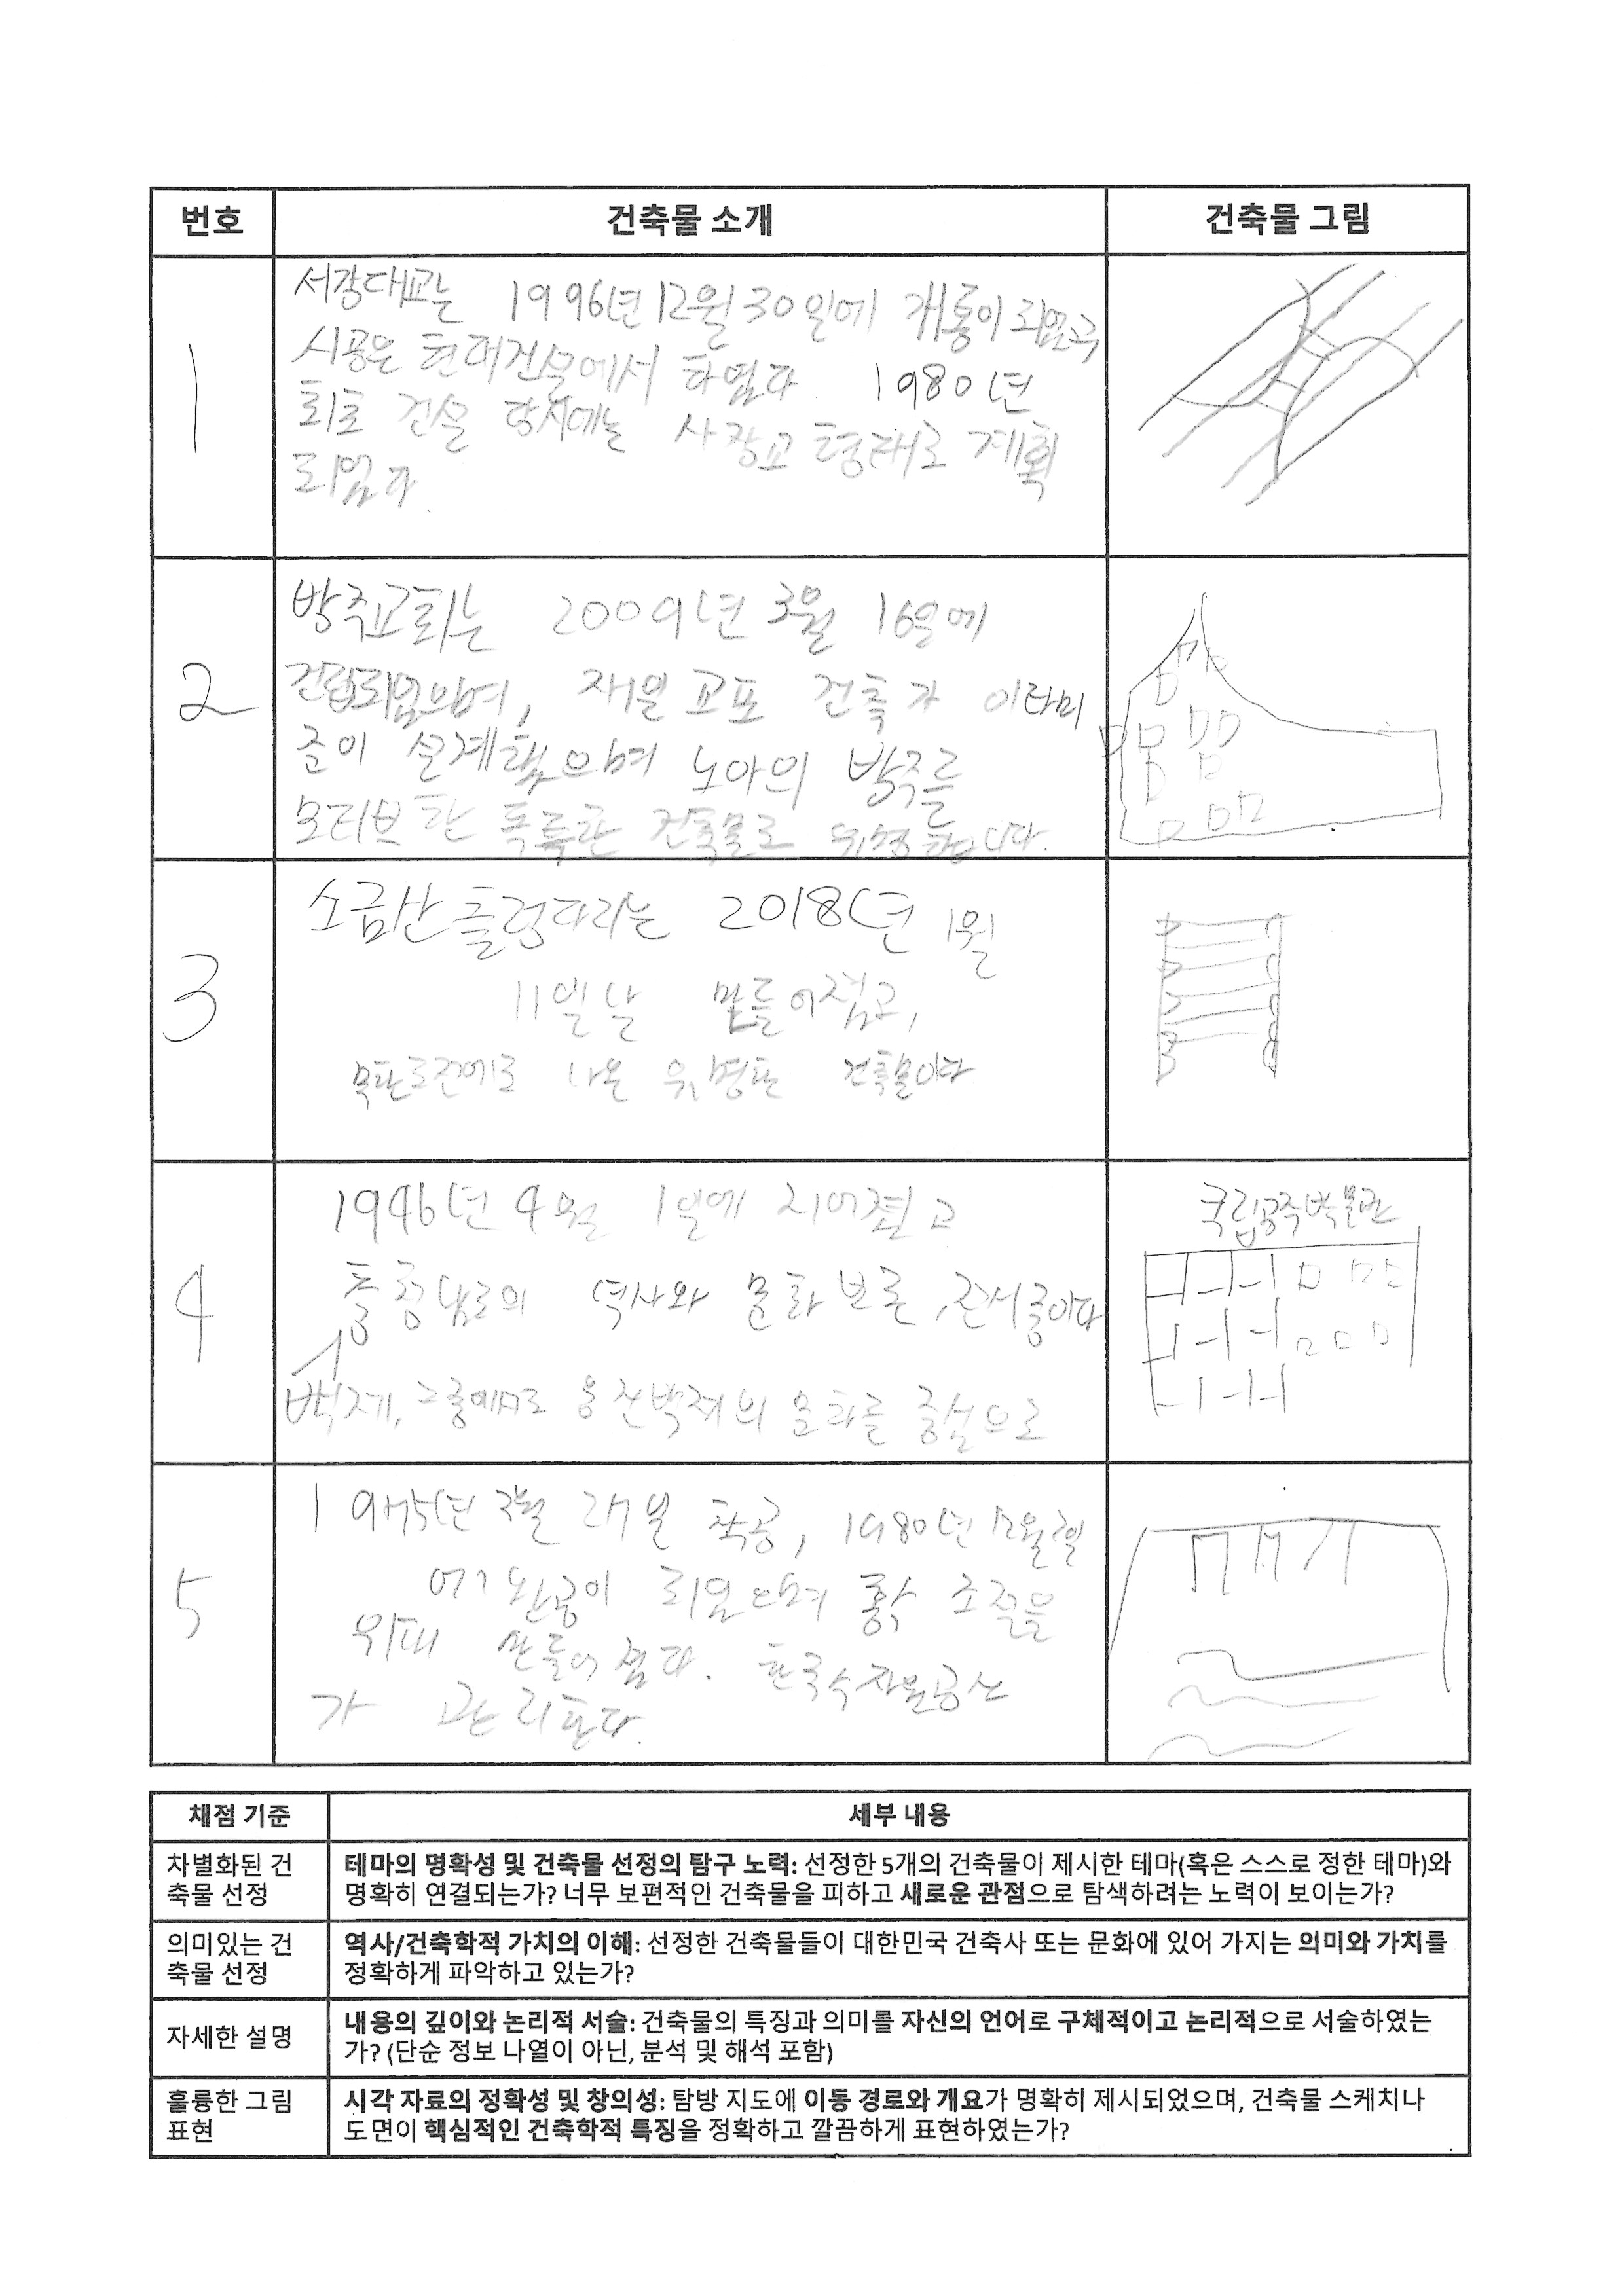 번호
건축물 소개
건축물 그림
1
서강대교는 1996년 12월 30일에 개통이 되었고
시공은 현대건설에서 하였다. 1980년
최초 건설 당시에는 사장교 형태로 계획
되었다.
2
방주교회는 2009년 3월 16일에
건립되었으며, 재일 교포 건축가 이타미
준이 설계했으며 노아의 방주를
모티브한 독특한 건축물로 유명합니다.
3
소금산출렁다리는 2018년 1월
11일날 만들어졌고,
유명한 건축물이다
4
1946년 4월 1일에 지어졌고
충청남도의 역사와 문화 보존, 전시중이다
백제, 그중에서도 웅진백제의 문화를 중심으로
국립공주박물관
5
1975년 3월 27일 착공, 1980년 12월
에 완공이 되었으며 홍수 조절을
위해 만들어졌다. 한국수자원공사
가 관리한다.
채점 기준
세부 내용
차별화된 건
축물 선정
테마의 명확성 및 건축물 선정의 탐구 노력: 선정한 5개의 건축물이 제시한 테마(혹은 스스로 정한 테마)와
명확히 연결되는가? 너무 보편적인 건축물을 피하고 새로운 관점으로 탐색하려는 노력이 보이는가?
의미있는 건
축물 선정
역사/건축학적 가치의 이해: 선정한 건축물들이 대한민국 건축사 또는 문화에 있어 가지는 의미와 가치를
정확하게 파악하고 있는가?
자세한 설명
내용의 깊이와 논리적 서술: 건축물의 특징과 의미를 자신의 언어로 구체적이고 논리적으로 서술하였는
가? (단순 정보 나열이 아닌, 분석 및 해석 포함)
훌륭한 그림
표현
시각 자료의 정확성 및 창의성: 탐방 지도에 이동 경로와 개요가 명확히 제시되었으며, 건축물 스케치나
도면이 핵심적인 건축학적 특징을 정확하고 깔끔하게 표현하였는가?